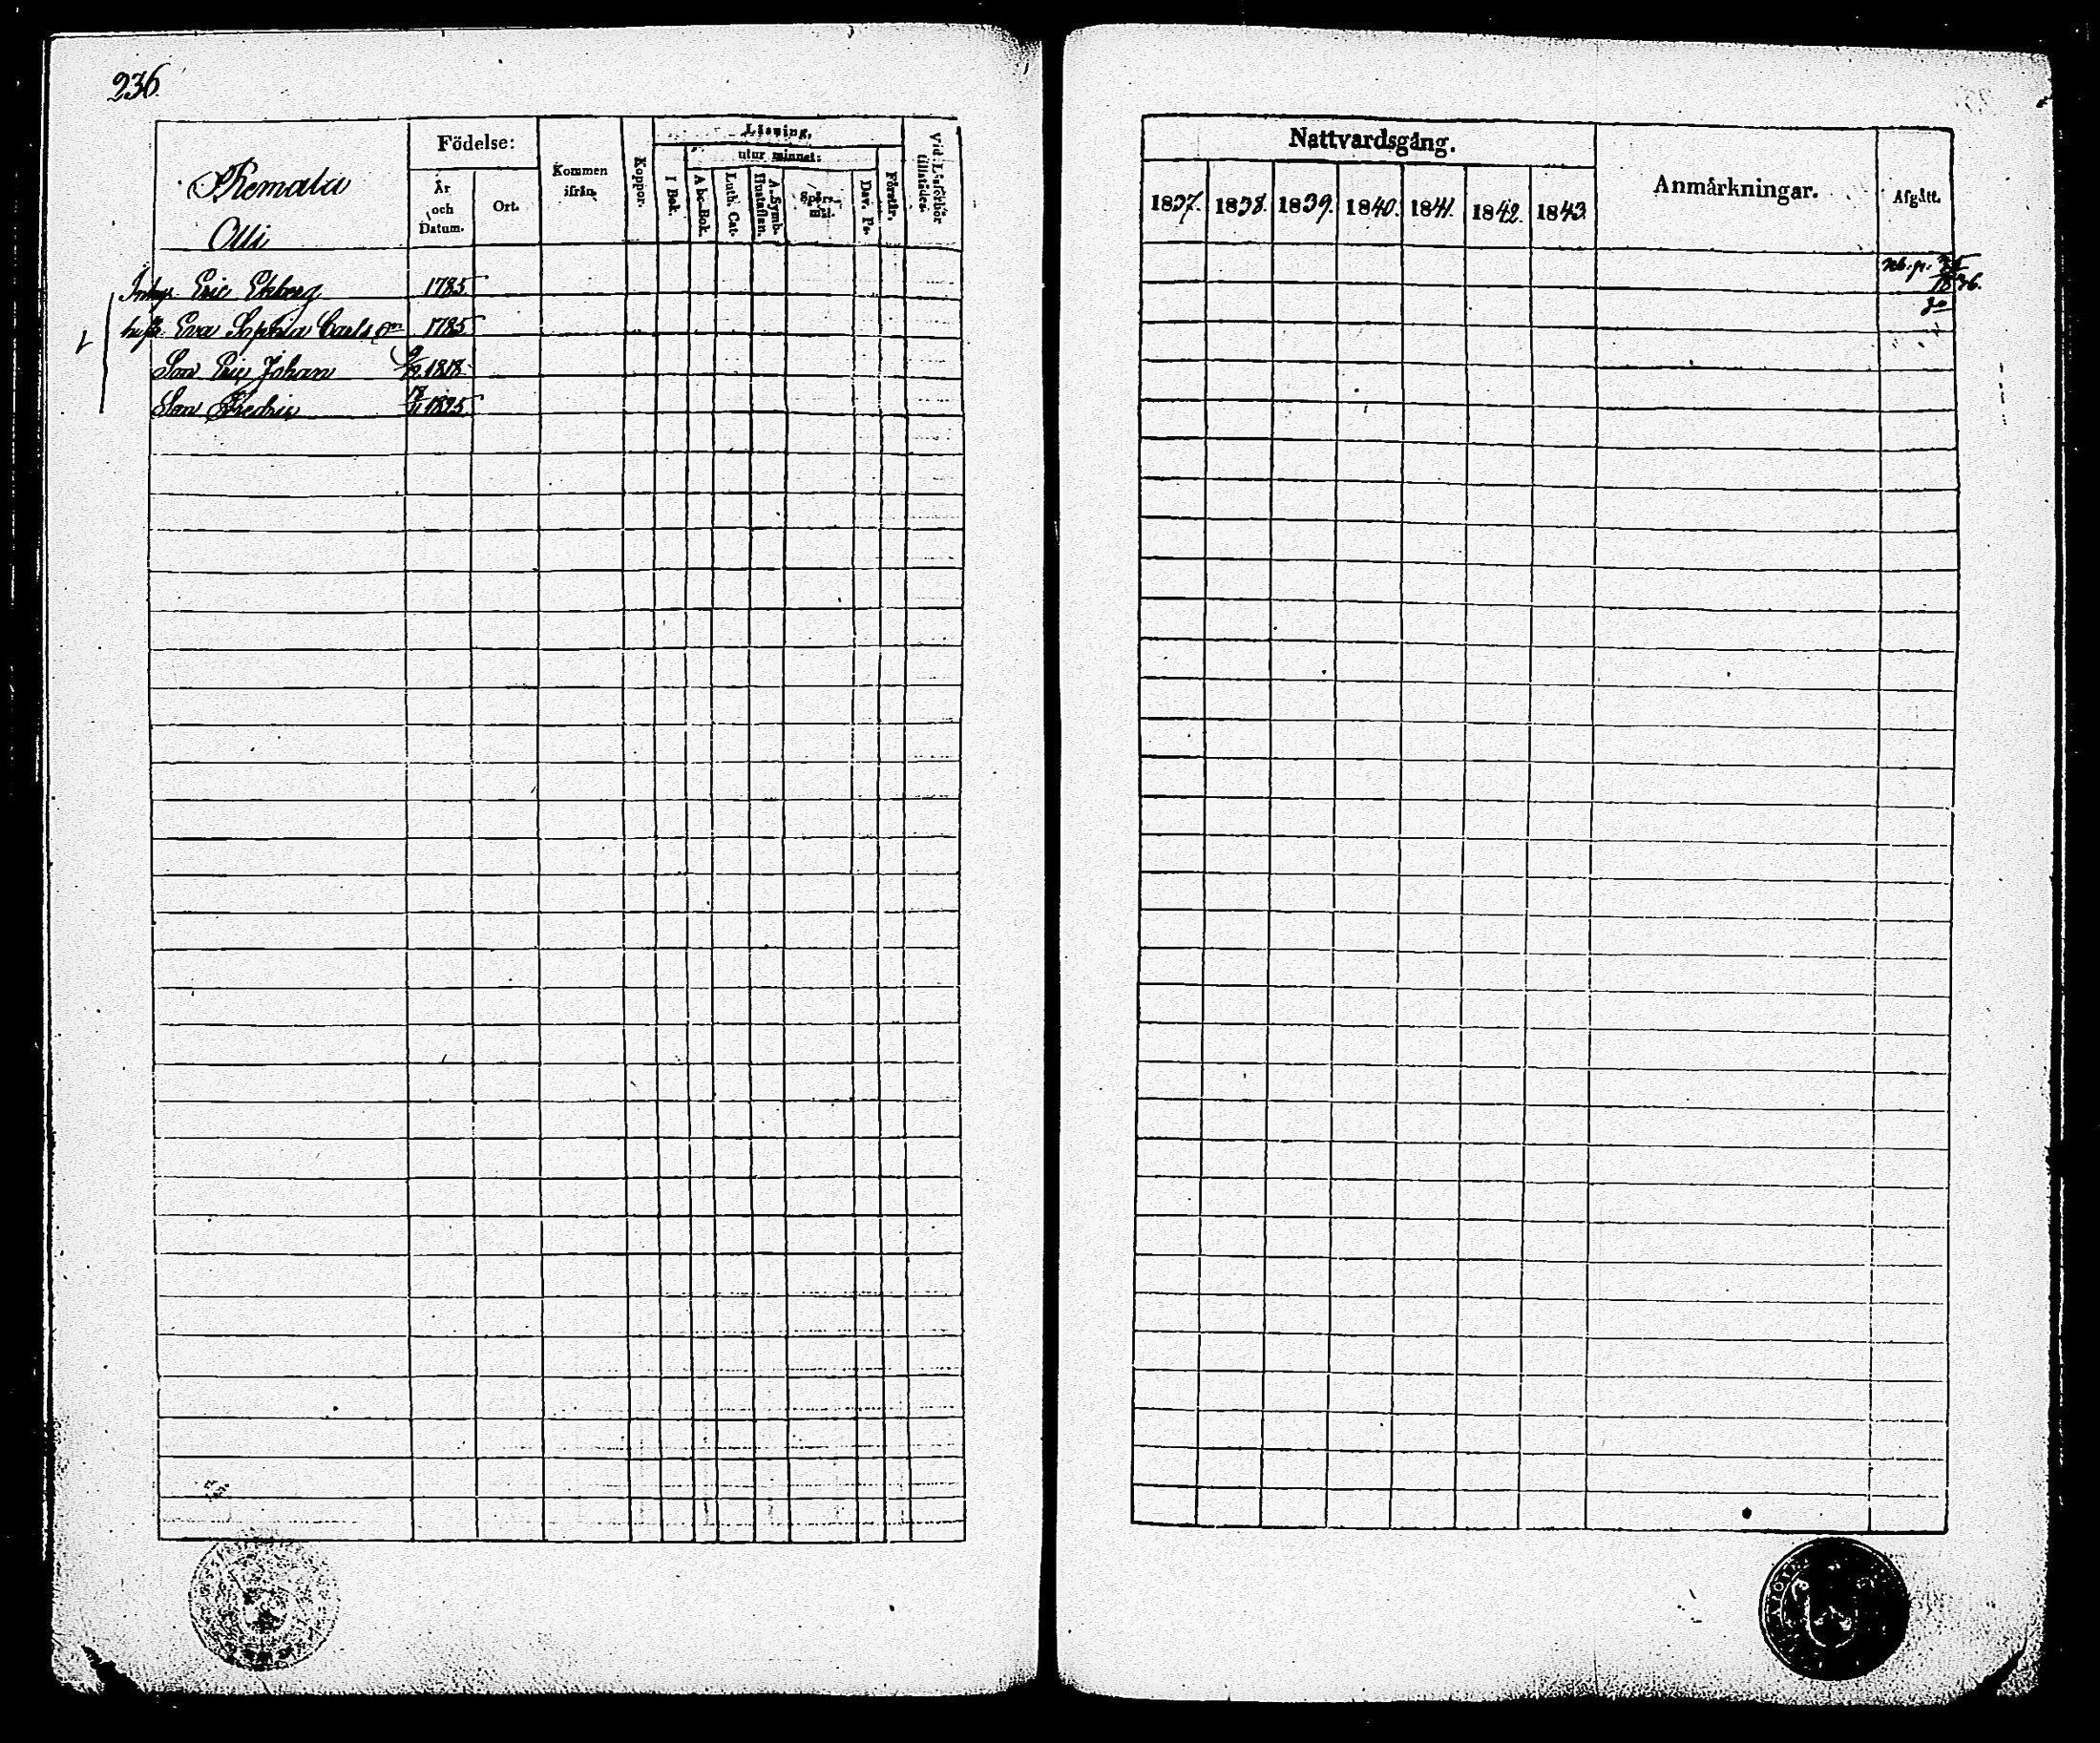 236
Remala
Olli
Födelse:
År och Datum.
Ort.
Kommen ifrån.
Koppor.
Läsning,
utur minnet:
I Bok.
A bc-Bok.
Luth. Cat.
A. Symb. Hustaflan.
Spörs-mål.
Dav. Ps.
Förstår.
Vid Läsförhör tillstädes.
Inhys. Eric Ekberg 1785
hust. Eva Sophia Carls dr 1785
Son Eric Johan 1818
Son Fredric 1825
Nattvardsgång.
1837. 1838. 1839. 1840. 1841. 1842. 1843.
Anmärkningar.
Afgått.